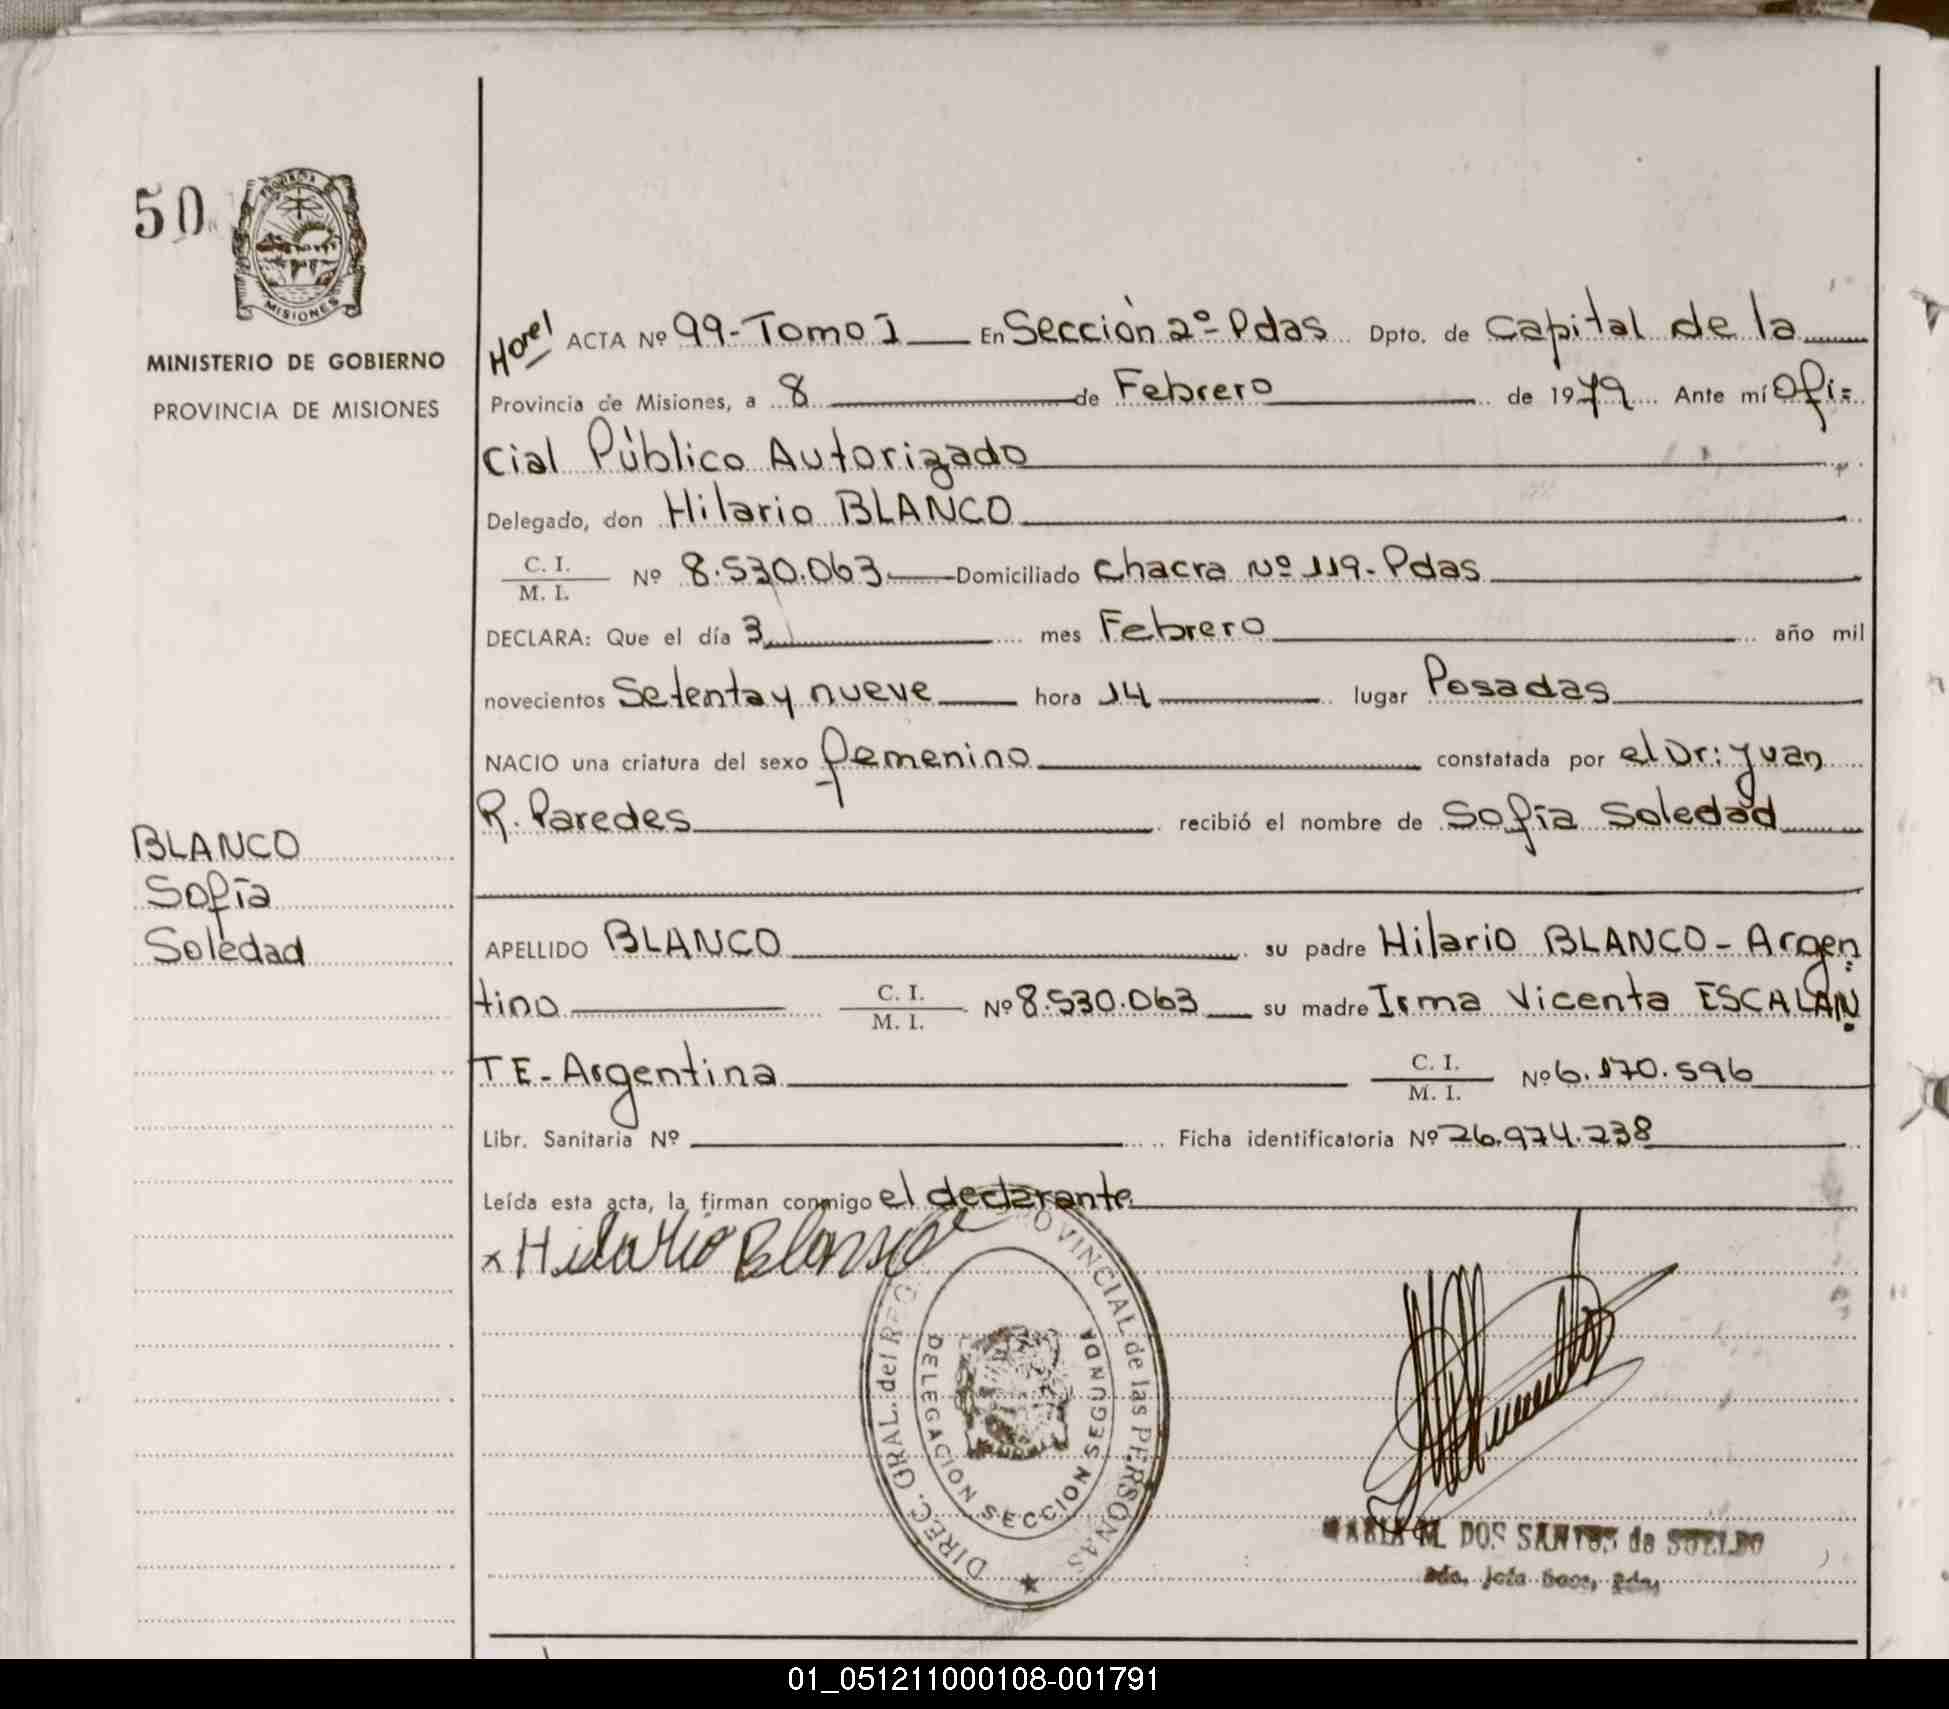 50
PROVINCIA
MISIONES
MINISTERIO DE GOBIERNO
PROVINCIA DE MISIONES
BLANCO
Sofía
Soledad
ACTA Nº 99-Tomo I En Sección 2º-Pdas Dpto. de Capital de la
Provincia de Misiones, a 8 de Febrero de 1979 Ante mí Ofi=
cial Público Autorizado
Delegado, don Hilario BLANCO
C. I.
M. I. Nº 8.530.063 Domiciliado Chacra Nº 119-Pdas
DECLARA: Que el día 3 mes Febrero año mil
novecientos Setenta y nueve hora 14 lugar Posadas
NACIO una criatura del sexo femenino constatada por el Dr: Juan
R. Paredes recibió el nombre de Sofía Soledad
APELLIDO BLANCO su padre Hilario BLANCO - Argen=
tino C. I. M. I. Nº 8.530.063 su madre Irma Vicenta ESCALAN=
TE - Argentina C. I. M. I. Nº 6.170.596
Libr. Sanitaria Nº Ficha identificatoria Nº 26.974.238
Leída esta acta, la firman conmigo el declarante
x Hilario Blanco
DIREC. GRAL. del REG. PROVINCIAL de las PERSONAS
DELEGACION SECCION SEGUNDA
MARIA M. DOS SANTOS de SUELDO
01_051211000108-001791